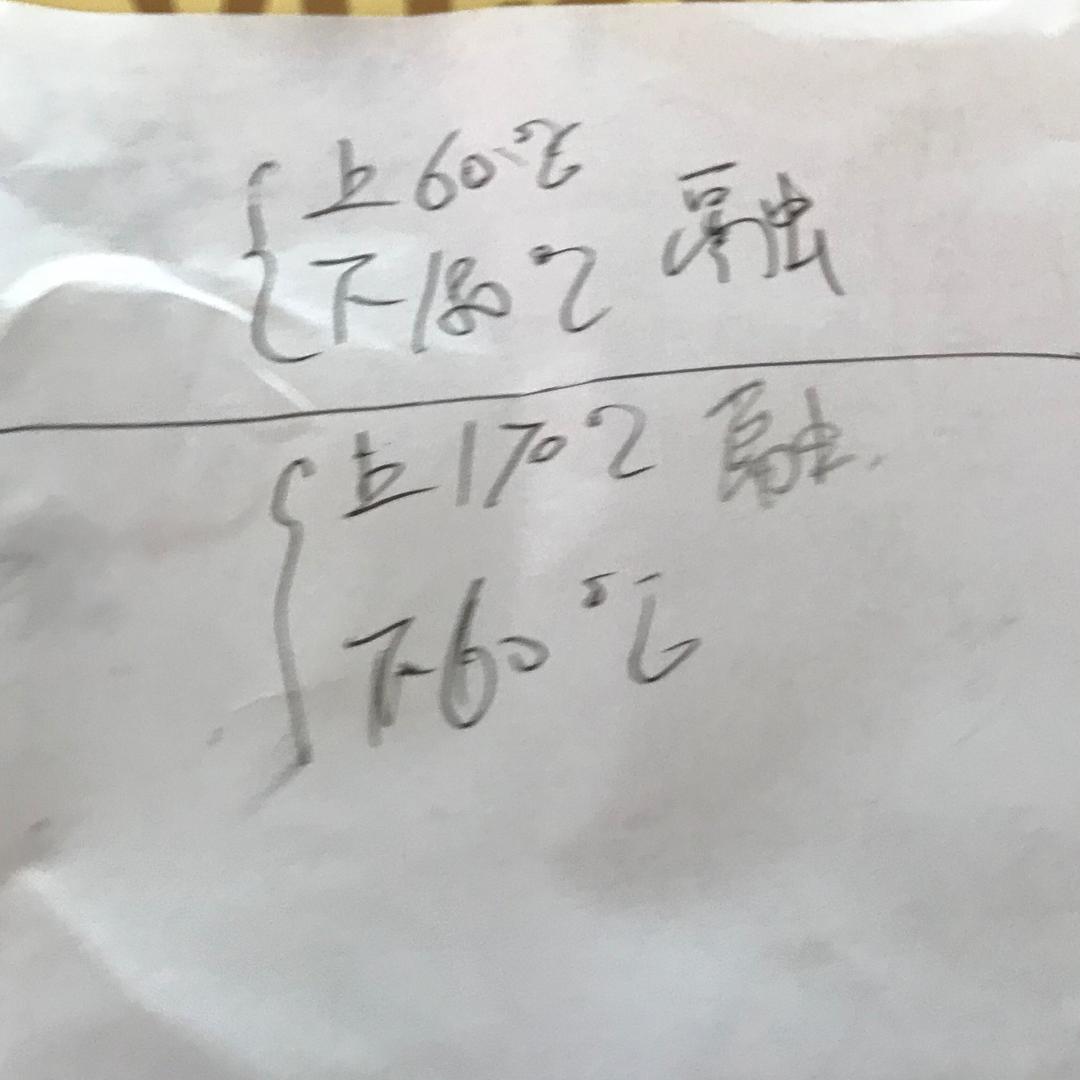 上60℃
下180℃ 融
上170℃ 融
下60℃